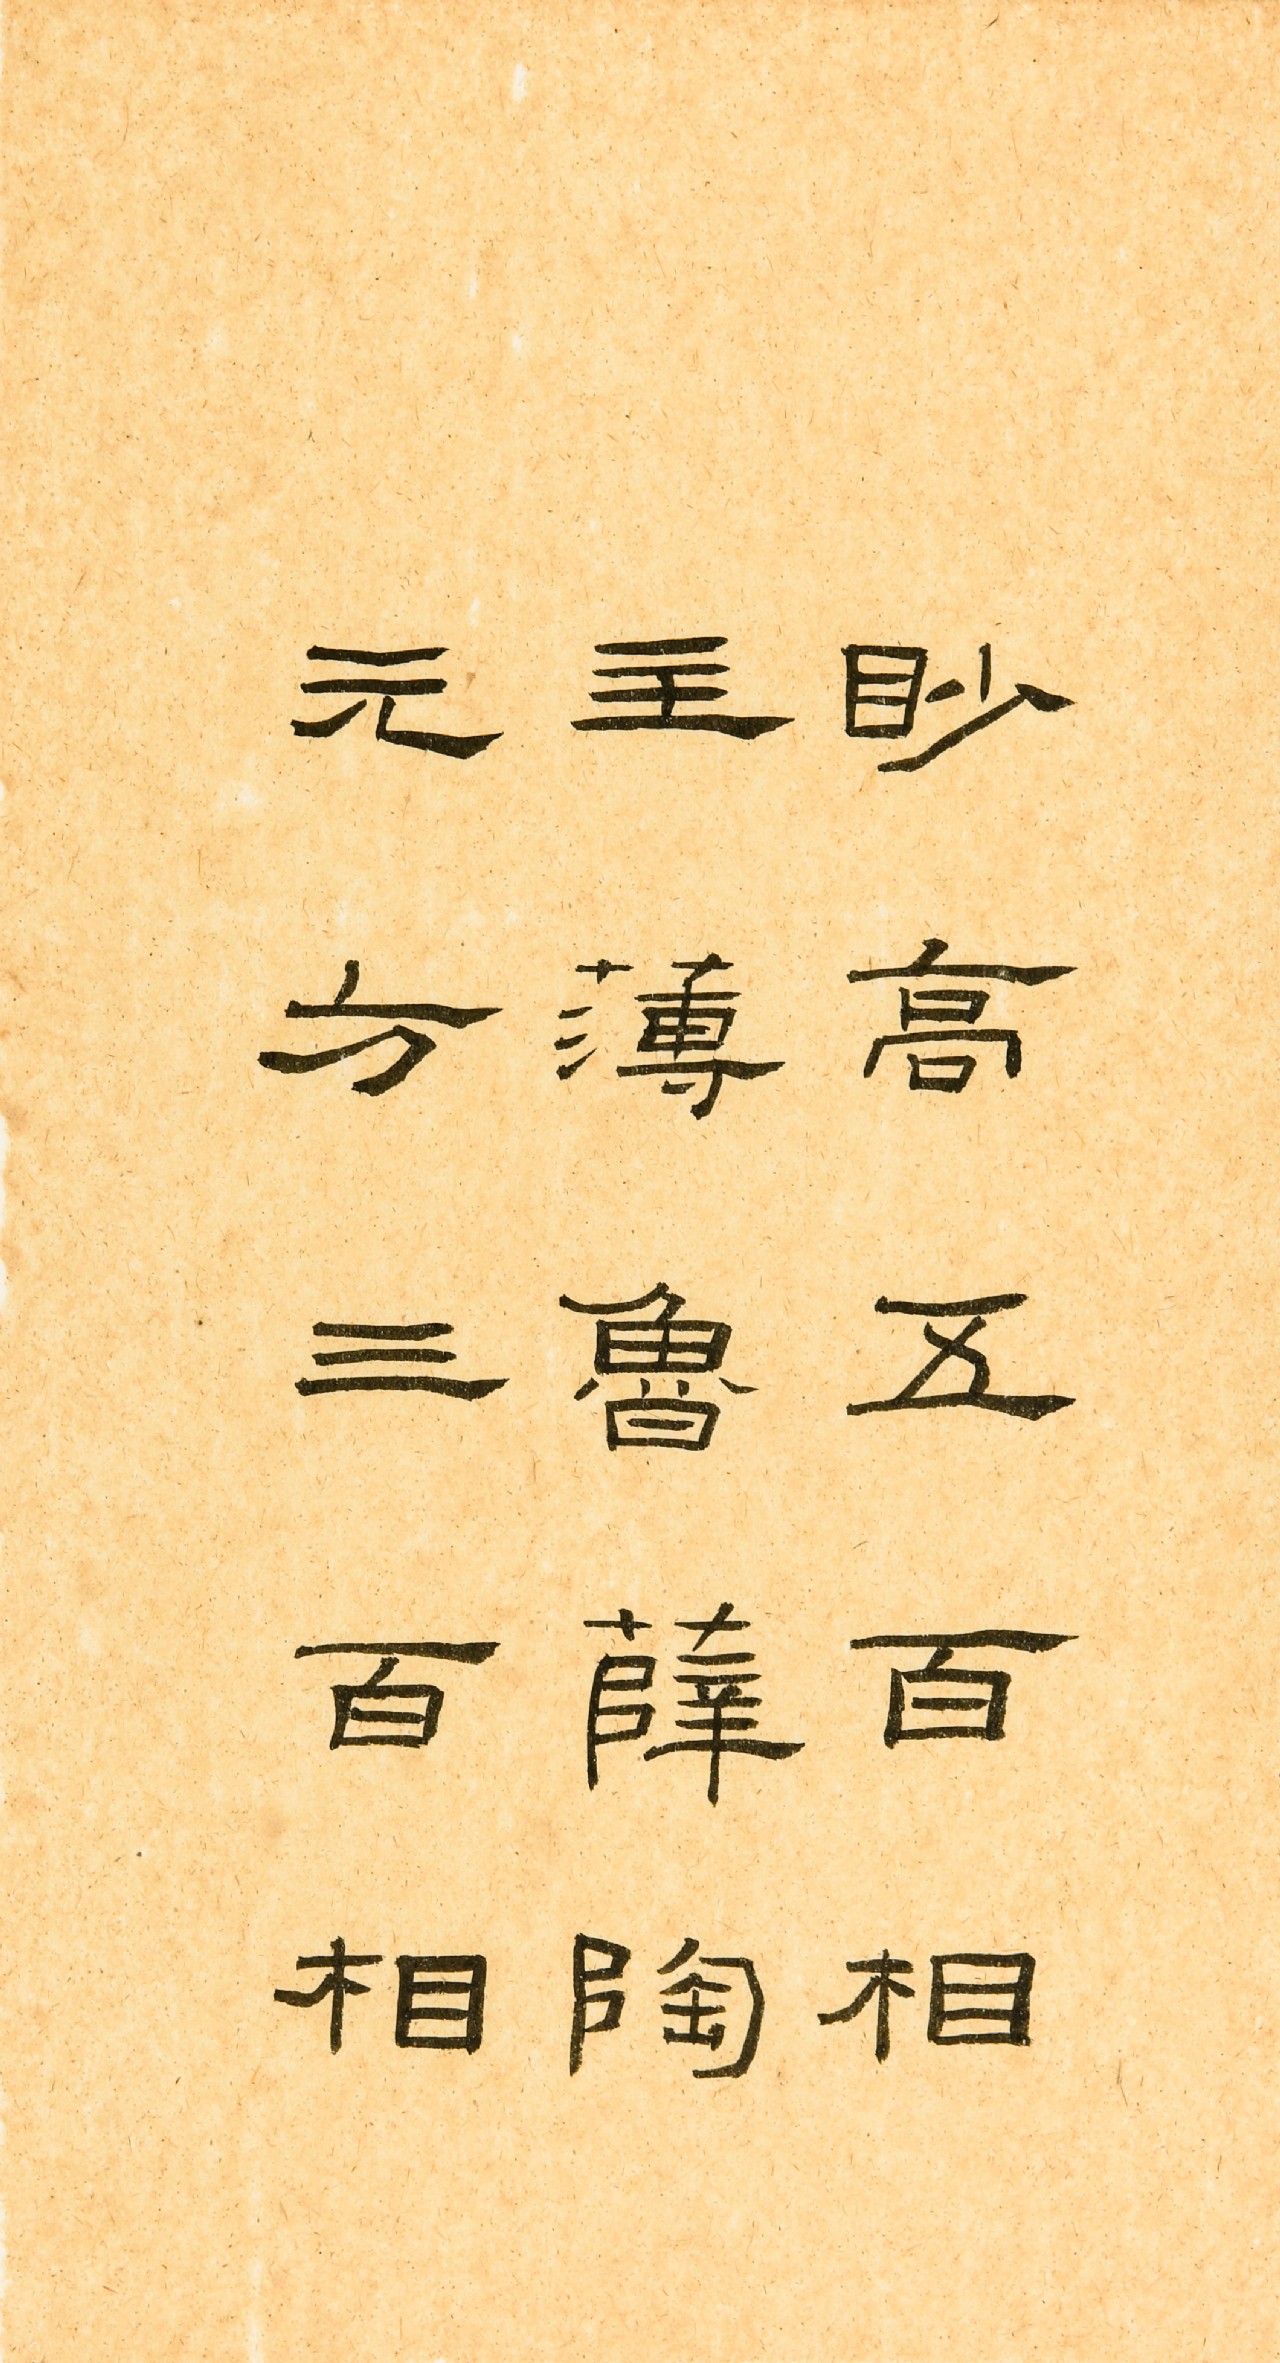 眇高五百相
主薄魯薛陶
元方三百相